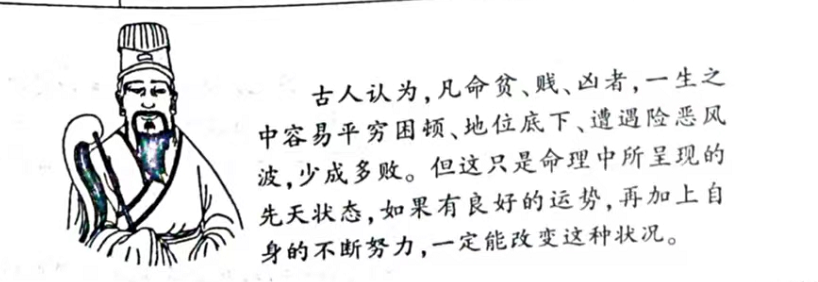 古人认为,凡命贫、贱、凶者,一生之
中容易平穷困顿、地位底下、遭遇险恶风
波,少成多败。但这只是命理中所呈现的
先天状态,如果有良好的运势,再加上自
身的不断努力,一定能改变这种状况。